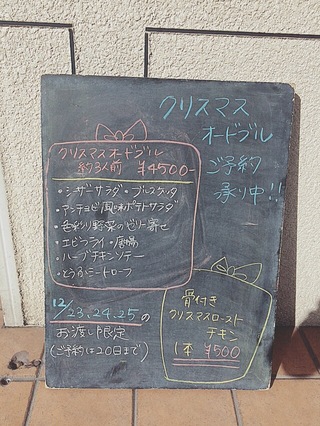 クリスマス
オードブル
ご予約
承り中!!
クリスマスオードブル
約3人前 ¥4500-
・シーザーサラダ・ブルスケッタ
・アンチョビ風味ポテトサラダ
・色彩り野菜のゼリー寄せ
・エビフライ・唐揚
・ハーブチキンソテー
・とうふミートローフ
12/23.24.25の
お渡し限定
(ご予約は20日まで)
骨付き
クリスマスロースト
チキン
1本 ¥500